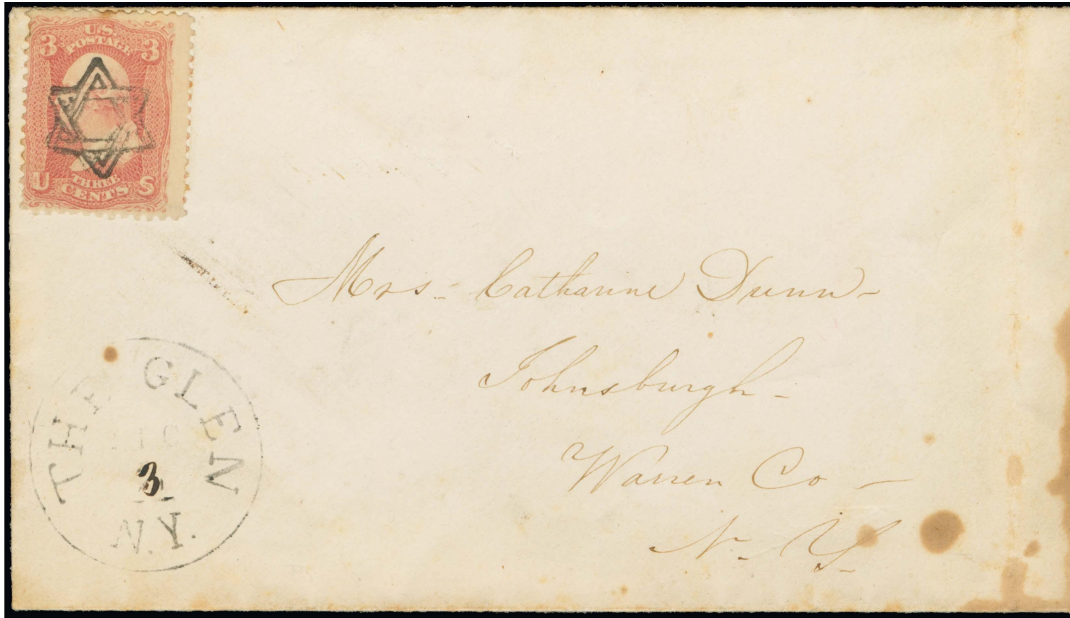 3 U.S. 3
POSTAGE
U THREE S
CENTS
Mrs. Catharine Dunn
Johnsburgh
Warren Co
N. Y.
THE GLEN
3
N.Y.